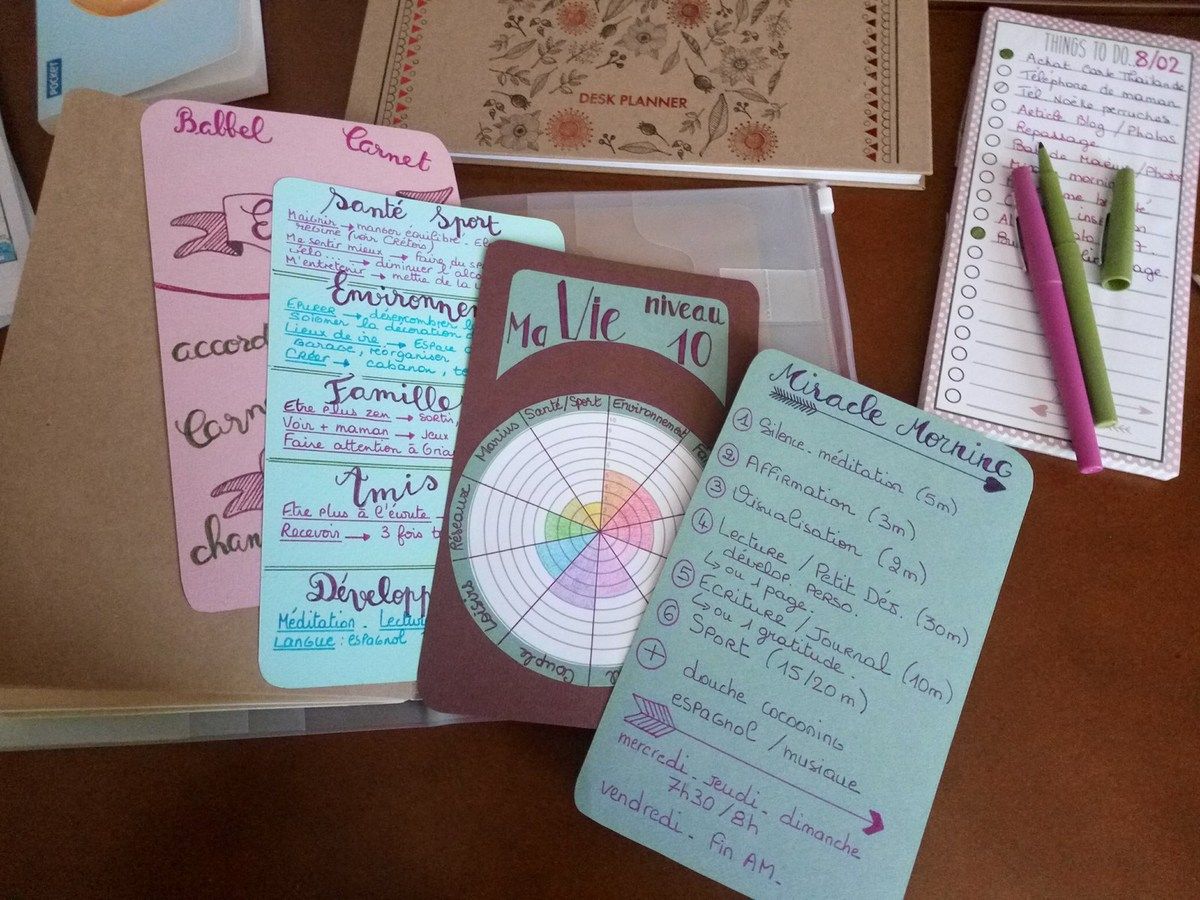 POCKET
DESK PLANNER
THINGS TO DO 8/02
Achat Carte Thaïlande
Téléphone de maman
Tel Noëlie perruches
Article Blog / Photos
Repassage
Babbel
Carnet
accord
Carn
chan
Santé Sport
Maigrir → manger équilibré
Régime (voir Crétois)
Me sentir mieux → faire du sp
Vélo... → diminuer l'alco
M'entretenir → mettre de la
Environnem
Epurer → désencombrer
Soigner la décoration
Lieux de vie → Espace
Garage, réorganiser
Créer → cabanon,
Famille
Etre plus zen → sortir,
Voir + maman → jeux
Faire attention à Gra
Amis
Etre plus à l'écoute
Recevoir → 3 fois
Développ
Méditation - Lectur
Langue : espagnol
Ma Vie niveau 10
Santé / Sport
Environnement
Fa
Marius
Réseaux
Loisirs
Couple
Miracle Morning
1 Silence - méditation (5m)
2 Affirmation (3m)
3 Visualisation (2m)
4 Lecture / Petit Déj. (30m)
dévelop. perso.
↳ ou 1 page.
5 Ecriture / Journal (10m)
↳ ou 1 gratitude.
6 Sport (15/20m)
+ douche cocooning
espagnol / musique
mercredi - jeudi - dimanche
7h30 / 8h
vendredi - fin AM.